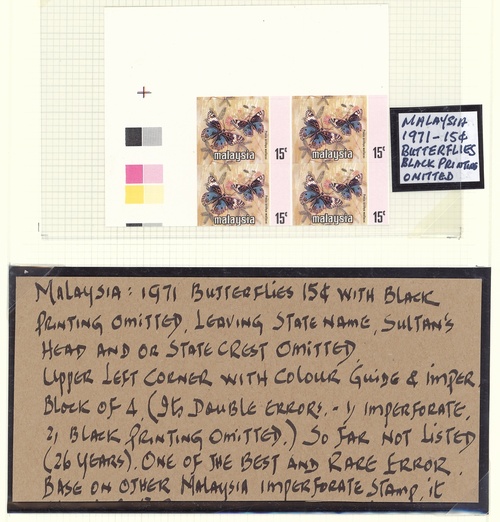 malaysia 15¢ malaysia 15¢
malaysia 15¢ malaysia 15¢
MALAYSIA
1971-15¢
BUTTERFLIES
BLACK PRINTING
OMITTED
MALAYSIA: 1971 BUTTERFLIES 15¢ WITH BLACK
PRINTING OMITTED, LEAVING STATE NAME, SULTAN'S
HEAD AND OR STATE CREST OMITTED
UPPER LEFT CORNER WITH COLOUR GUIDE & IMPER
BLOCK OF 4. (It's DOUBLE ERRORS. - 1) IMPERFORATE,
2) BLACK PRINTING OMITTED.) SO FAR NOT LISTED
(26 YEARS). ONE OF THE BEST AND RARE ERROR.
BASE ON OTHER MALAYSIA IMPERFORATE STAMP, it